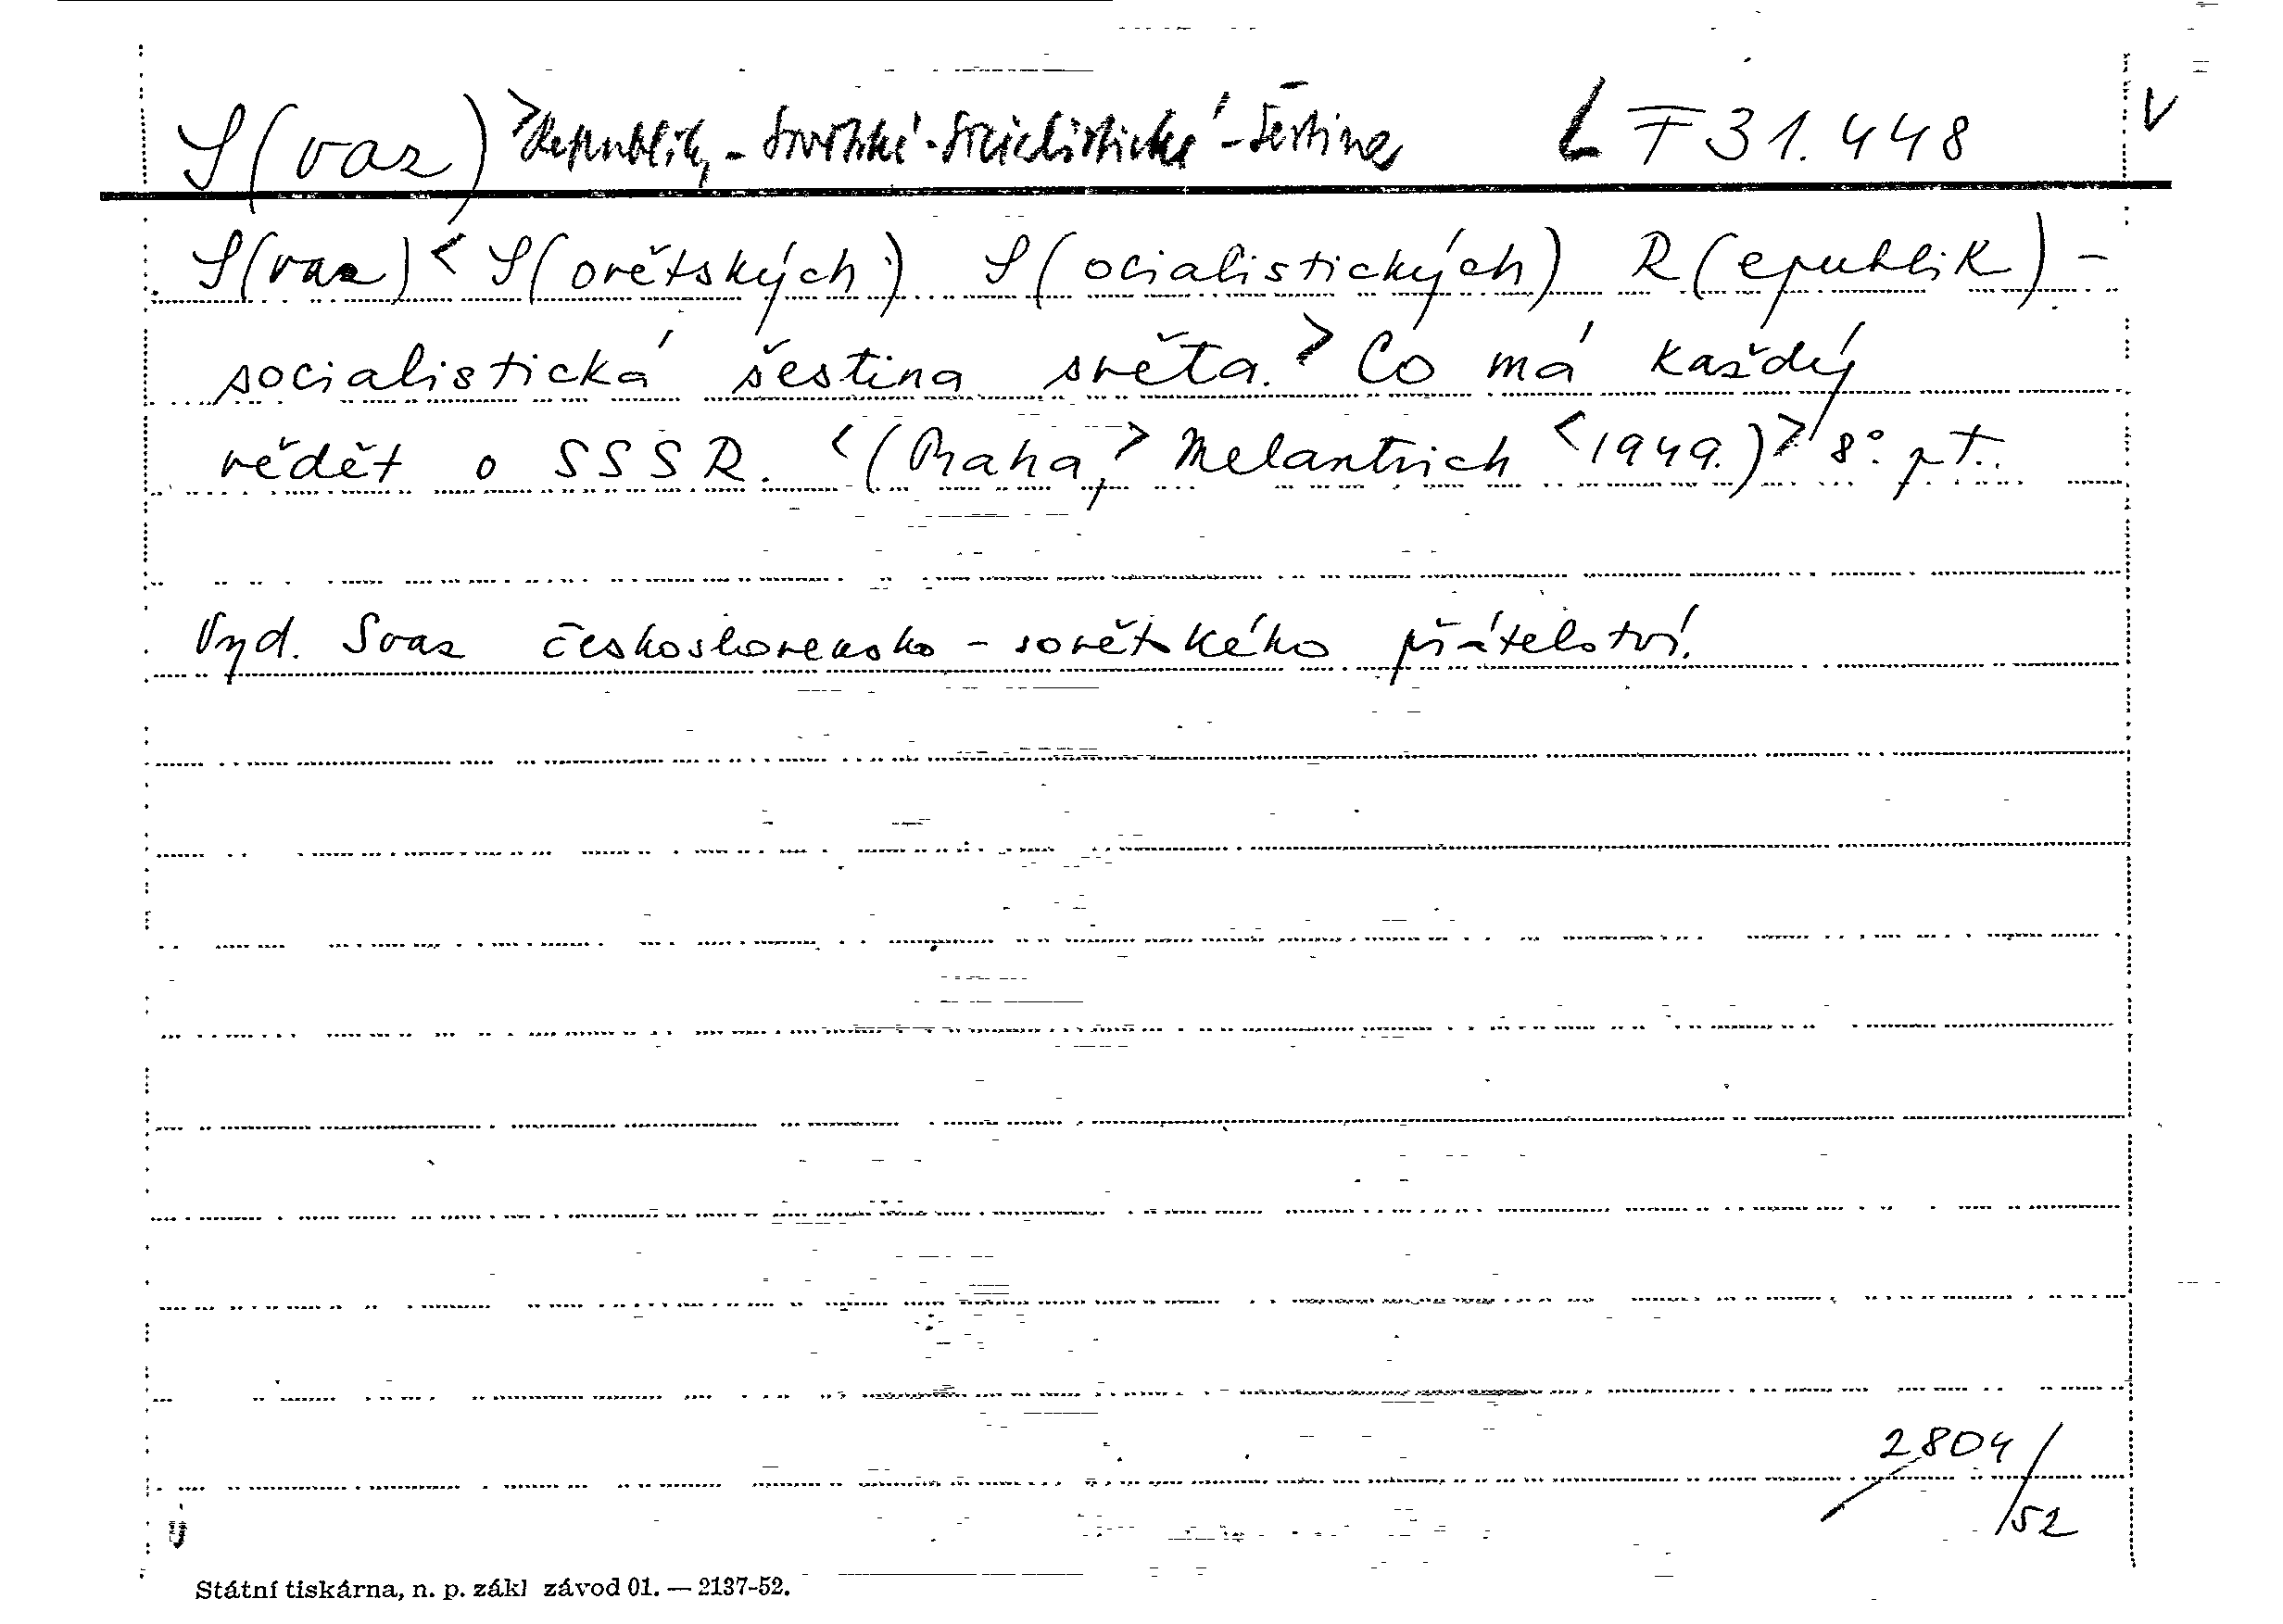 S(vaz) > Republiky - Sovětské - Socialistické - Šestina LT 31.448 V
S(vaz) < S(ovětských) S(ocialistických) R(epublik) -
socialistická šestina světa. > Co má každý
vědět o SSSR. < (Praha, > Melantrich < 1949.) > 8°. pt..
Vyd. Svaz československo - sovětského přátelství.
2804/
52
Státní tiskárna, n. p. zákl závod 01. — 2137-52.